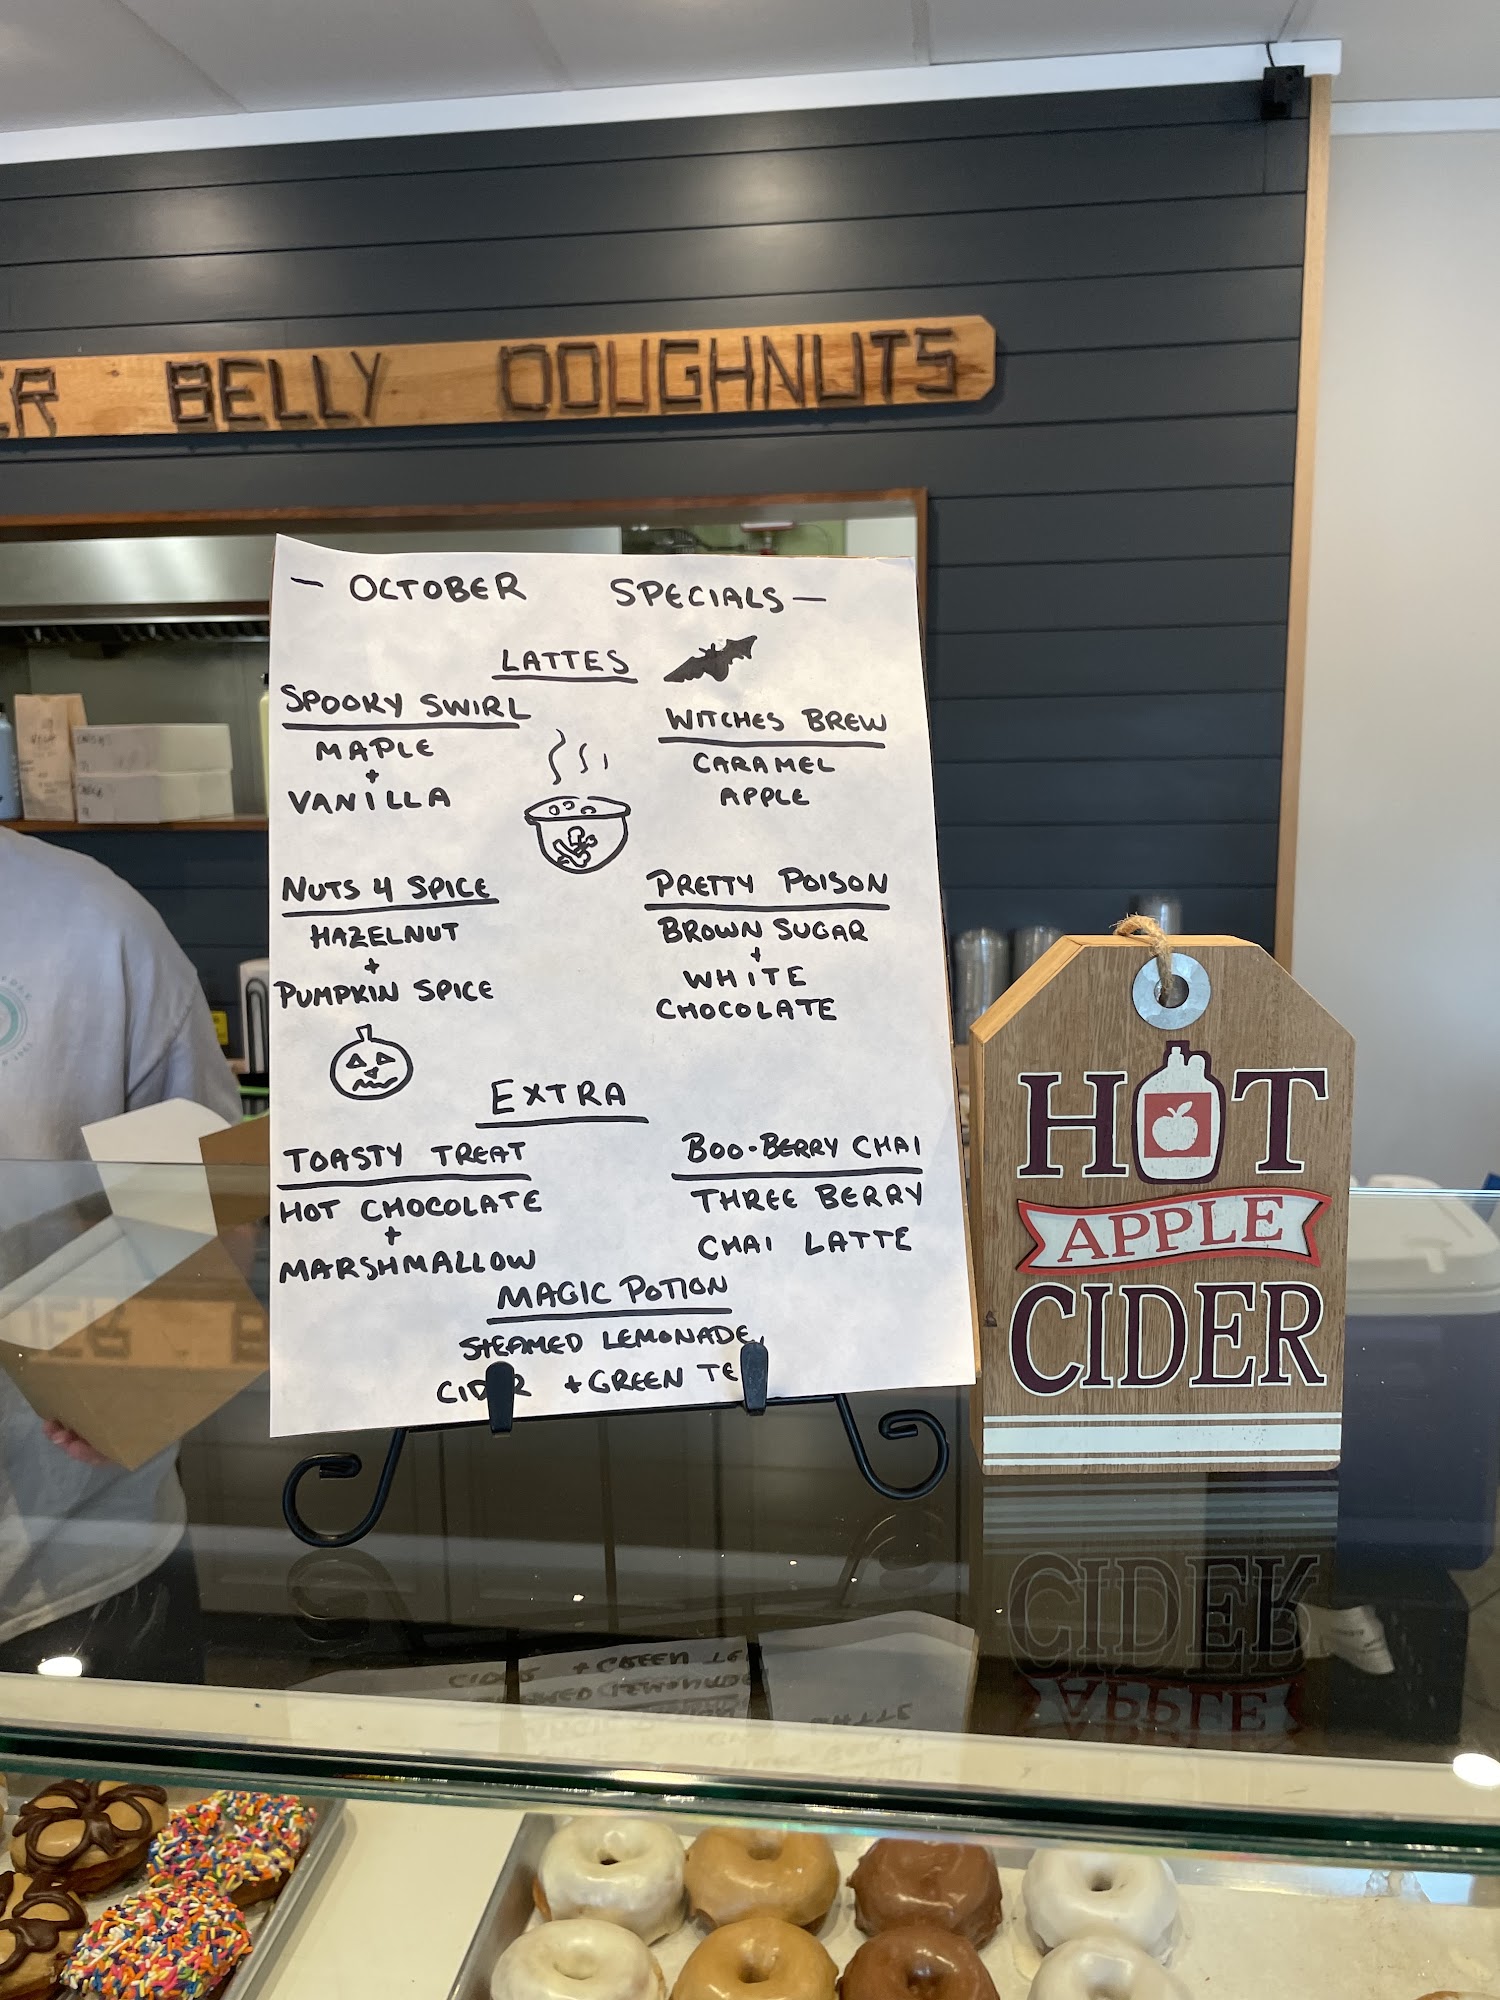 BELLY DOUGHNUTS
— OCTOBER SPECIALS —
LATTES
SPOOKY SWIRL
MAPLE
+
VANILLA
WITCHES BREW
CARAMEL
APPLE
NUTS 4 SPICE
HAZELNUT
+
PUMPKIN SPICE
PRETTY POISON
BROWN SUGAR
+
WHITE
CHOCOLATE
EXTRA
TOASTY TREAT
HOT CHOCOLATE
+
MARSHMALLOW
BOO-BERRY CHAI
THREE BERRY
CHAI LATTE
MAGIC POTION
STEAMED LEMONADE,
CIDER + GREEN TE
HOT
APPLE
CIDER